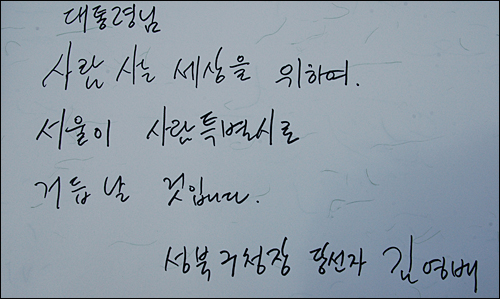 대통령님
사람 사는 세상을 위하여.
서울이 사람특별시로
거듭 날 것입니다.
성북구청장 당선자 김영배